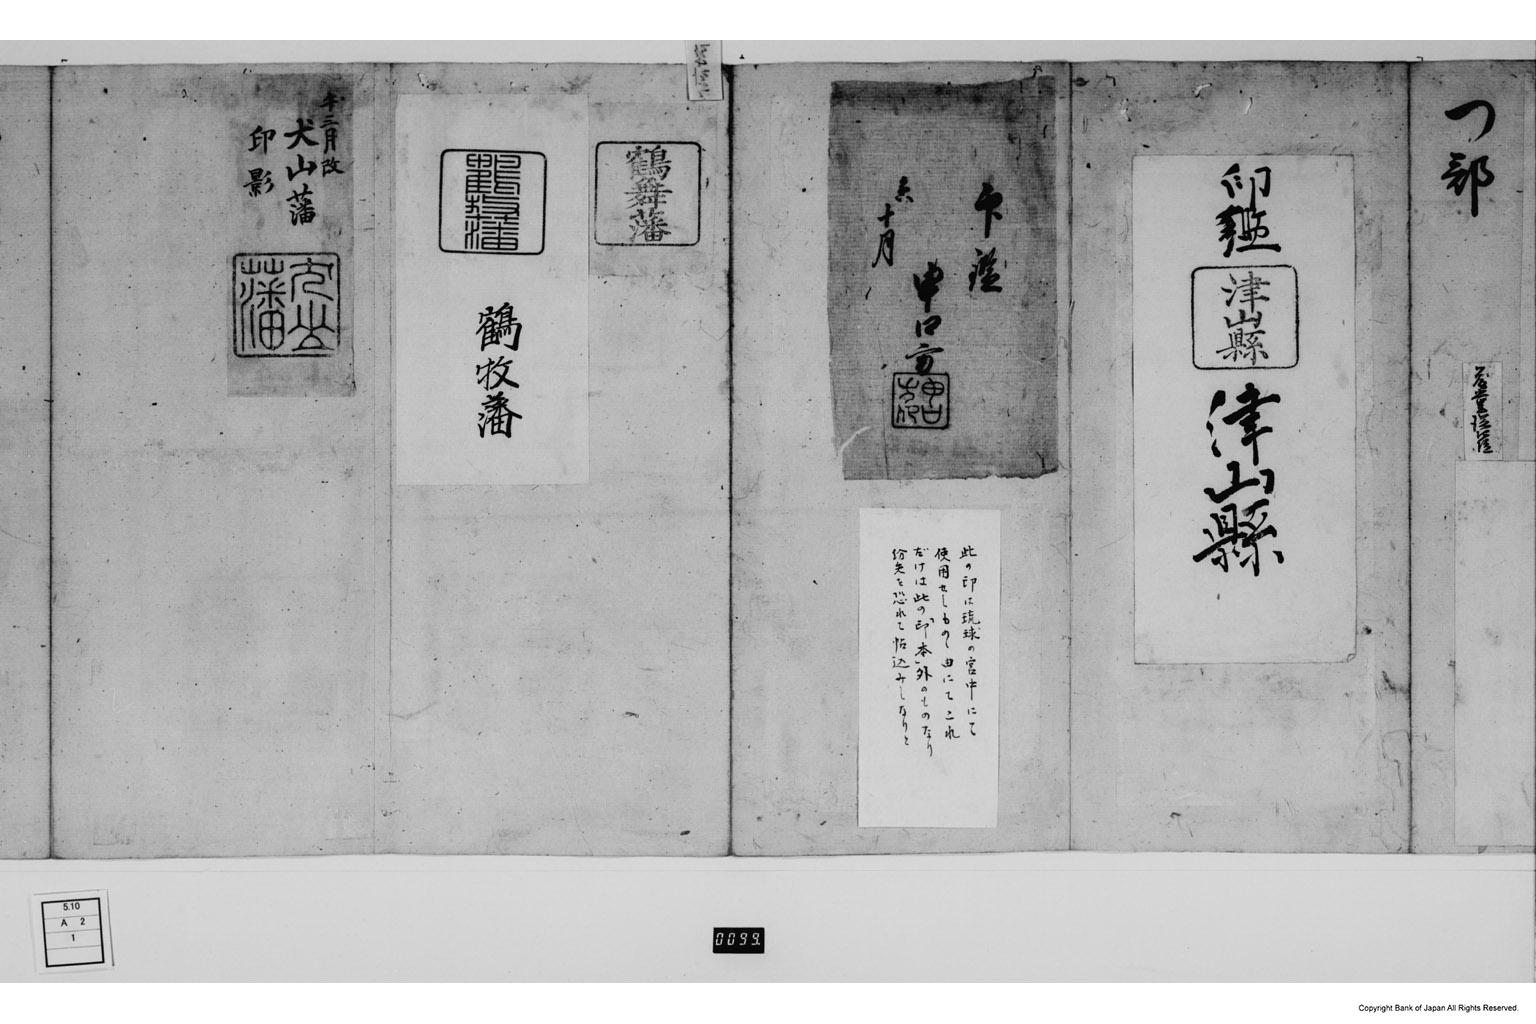 つ部
印鑑
津山縣
津山縣
印鑑
申口方
申口方印
十月
此の印は琉球の宮中にて
使用せしもの 由にてこれ
だけは此の「印本」外のものなり
紛失を恐れて帖込みしなりと
鶴舞藩
鶴牧藩
鶴牧藩
午三月改
犬山藩
印影
犬山藩
5.10
A 2
1
0099.
Copyright Bank of Japan All Rights Reserved.